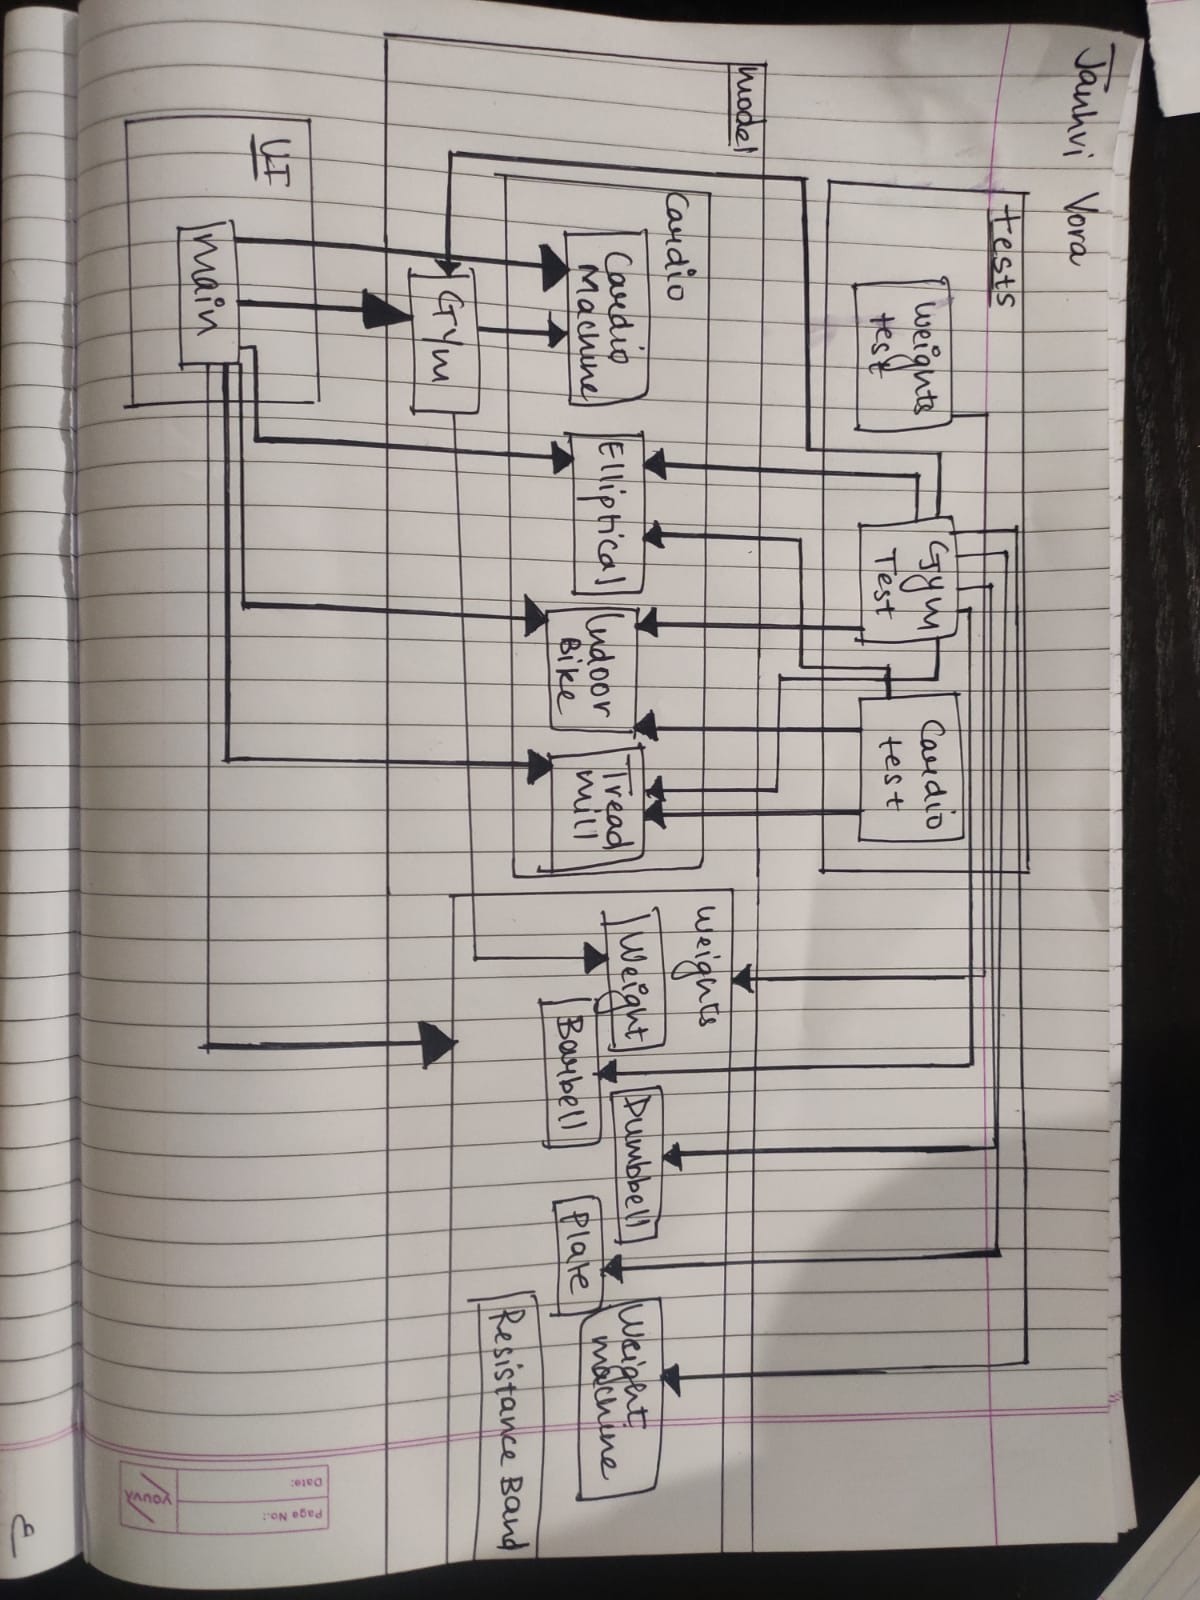 Janhvi Vora
tests
Weights
test
Gym
Test
Cardio
test
model
Cardio
Cardio
Machine
Elliptical
Indoor
Bike
Tread
mill
Weights
Weight
Barbell
Dumbbell
Plate
Weight
machine
Resistance Band
Gym
UI
main
Page No.:
Date:
YOUVA